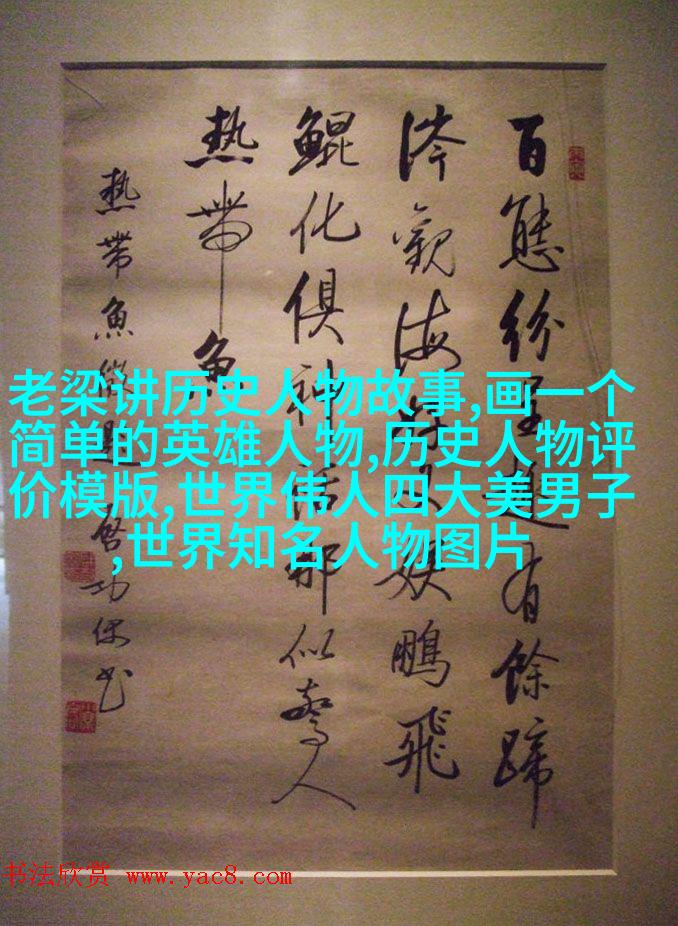 百態紛呈趣有餘蹄
涔觀海鵬飛
鯤化俱神話那似驚人
熱帶魚
熱帶魚徵題 啓功
老梁讲历史人物故事,画一个
简单的英雄人物,历史人物评
价模版,世界伟人四大美男子
,世界知名人物图片
书法欣赏 www.yac8.com